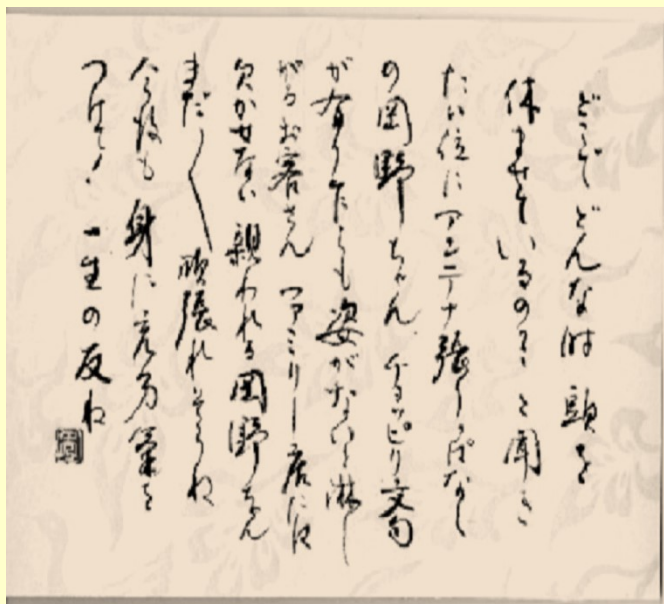 どこでどんな時 頭を
休ませているのか と聞き
たい位にアンテナ張りっぱなし
の岡野ちゃん、チョッピリ文句
が有りたとも姿がないと淋し
がるお客さん ファミリー店には
欠かせない 親われる岡野ちゃん
まだ〱 頑張れそうね
今後も 身に 気を
つけて! 一生の友ね